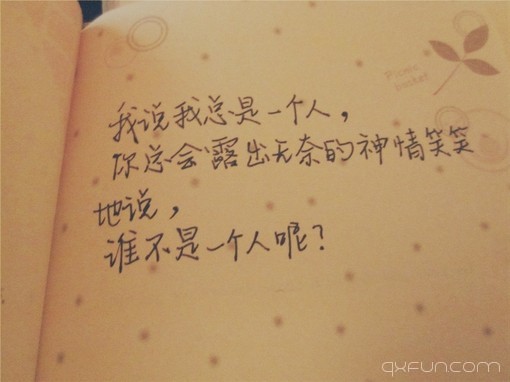 Picnic
basket
我说我总是一个人，
你总会露出无奈的神情笑笑
地说，
谁不是一个人呢？
qxfun.com